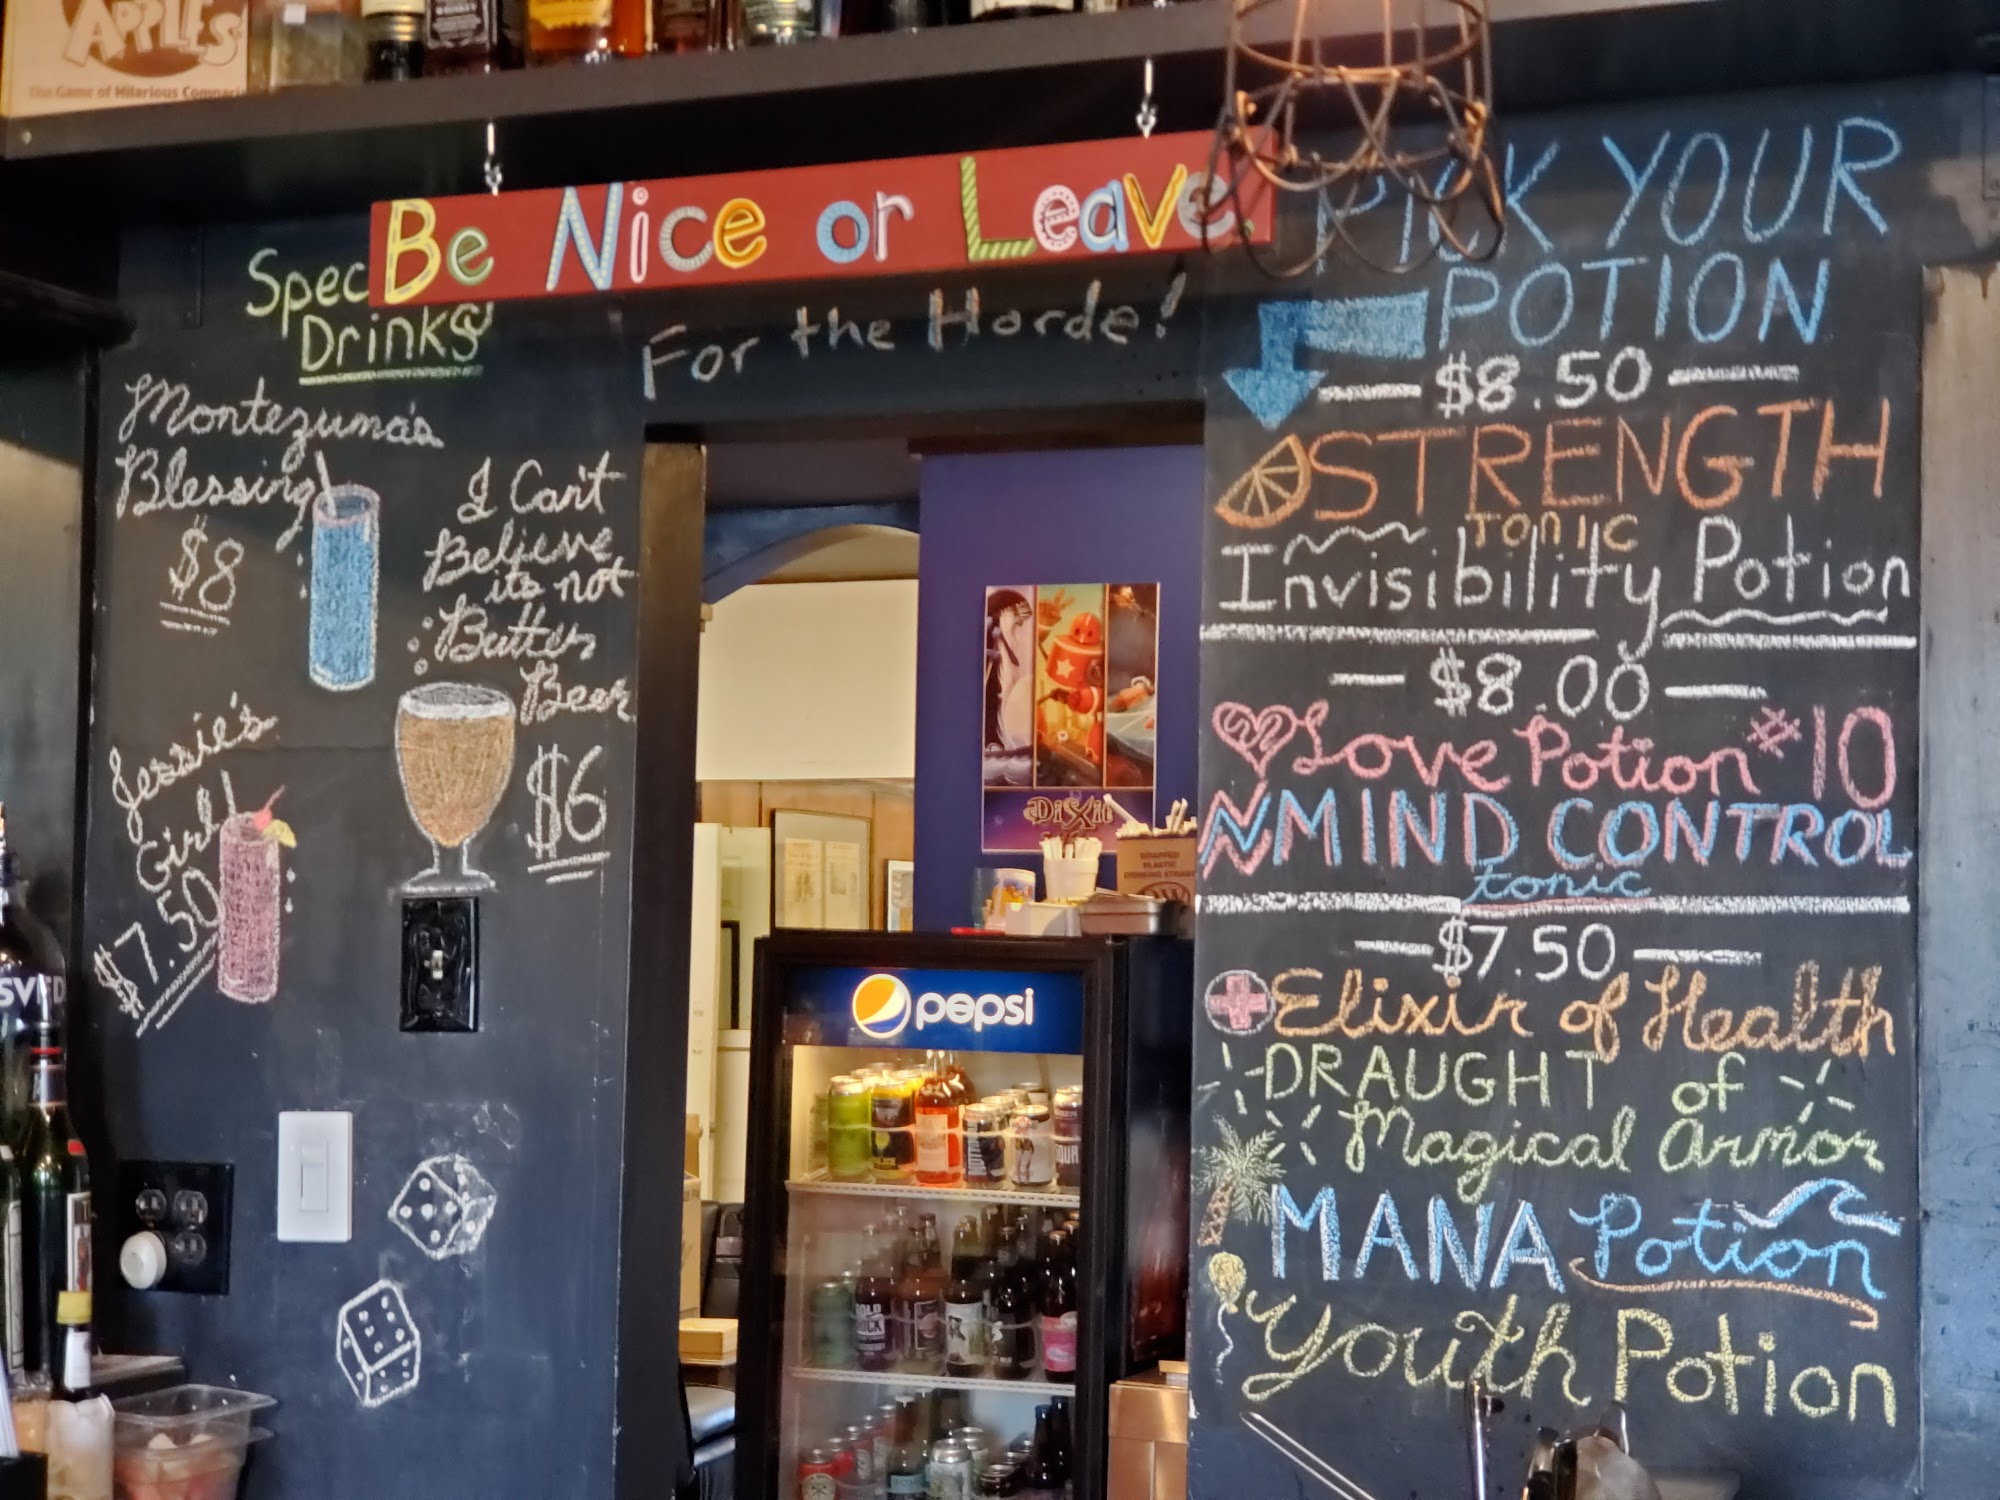 APPLES
The Game of Hilarious
Be Nice or Leave.
Spec
Drinks
For the Horde!
Montezuma's
Blessing
$8
I Can't
Believe
its not
Butter
Beer
$6
Jessie's
Girl
$7.50
PICK YOUR
POTION
$8.50
STRENGTH
TONIC
Invisibility Potion
$8.00
Love Potion #10
MIND CONTROL
tonic
$7.50
Elixir of Health
DRAUGHT of
Magical Armor
MANA Potion
Youth Potion
DiXit
WRAPPED
PLASTIC
DRINKING STRAWS
pepsi
SVED